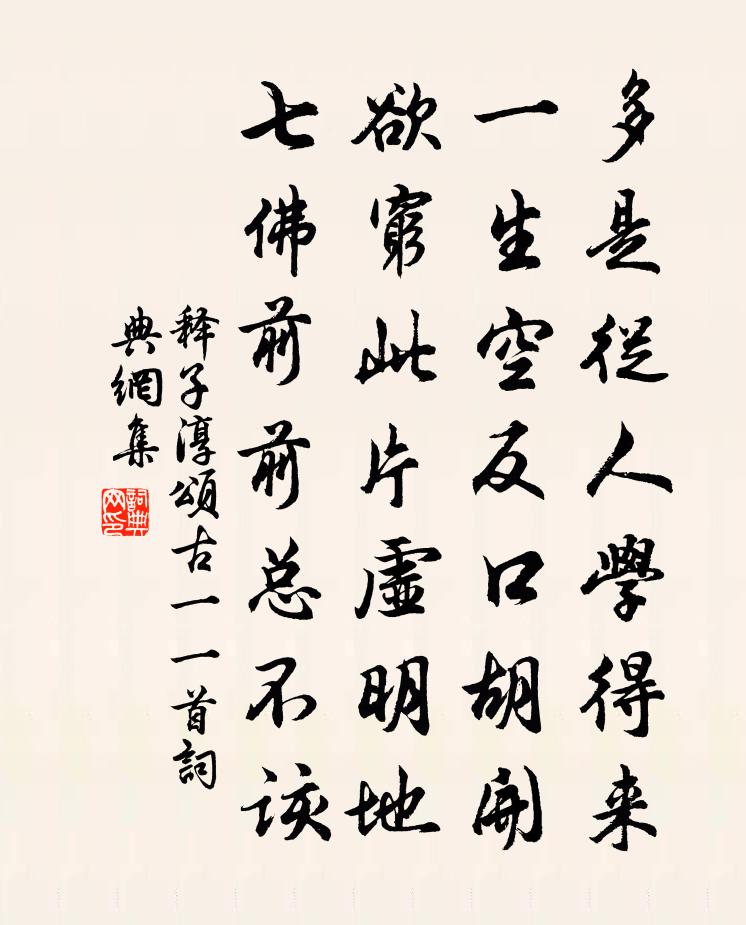 多是從人學得来
一生空反口胡開
欲窮此片虛明地
七佛前前总不該
释子淳頌古一一首詞
典網集
詞典网印